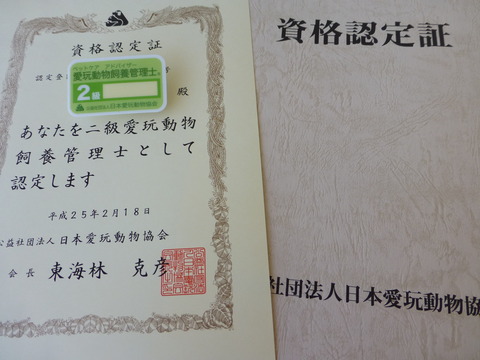 資格認定証
認定登
ペットケア アドバイザー
愛玩動物飼養管理士®
2級
公益社団法人日本愛玩動物協会
殿
あなたを二級愛玩動物
飼養管理士として
認定します
平成25年2月18日
公益社団法人日本愛玩動物協会
会長 東海林 克彦
資格認定証
社団法人日本愛玩動物協